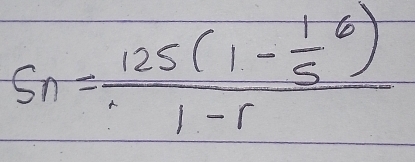 Sn = \frac{125(1 - \frac{1}{5}^6)}{1 - r}